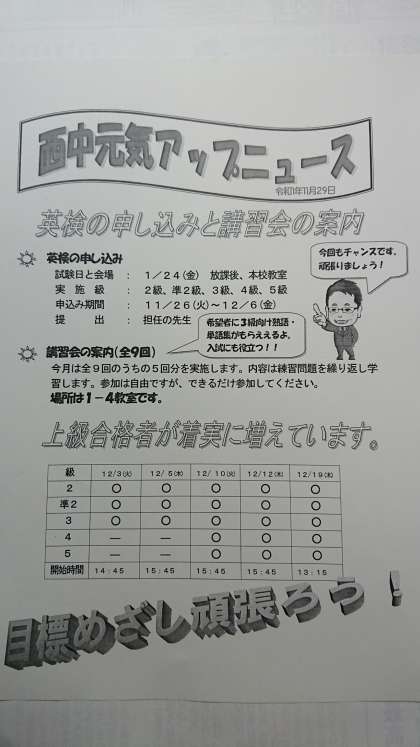 西中元気アップニュース
令和1年11月29日
英検の申し込みと講習会の案内
英検の申し込み
試験日と会場 : 1/24(金) 放課後、本校教室
実施級 : 2級、準2級、3級、4級、5級
申込み期間 : 11/26(火)~12/6(金)
提出 : 担任の先生
今回もチャンスです。
頑張りましょう!
希望者に3級向け熟語・
単語集がもらええるよ。
入試にも役立つ!!
講習会の案内(全9回)
今月は全9回のうちの5回分を実施します。内容は練習問題を繰り返し学
習します。参加は自由ですが、できるだけ参加してください。
場所は1-4教室です。
上級合格者が着実に増えています。
級 12/3(火) 12/5(木) 12/10(火) 12/12(木) 12/19(木)
2 ○ ○ ○ ○ ○
準2 ○ ○ ○ ○ ○
3 ○ ○ ○ ○ ○
4 ― ― ○ ○ ○
5 ― ― ○ ○ ○
開始時間 14:45 15:45 15:45 15:45 13:15
目標めざし頑張ろう!